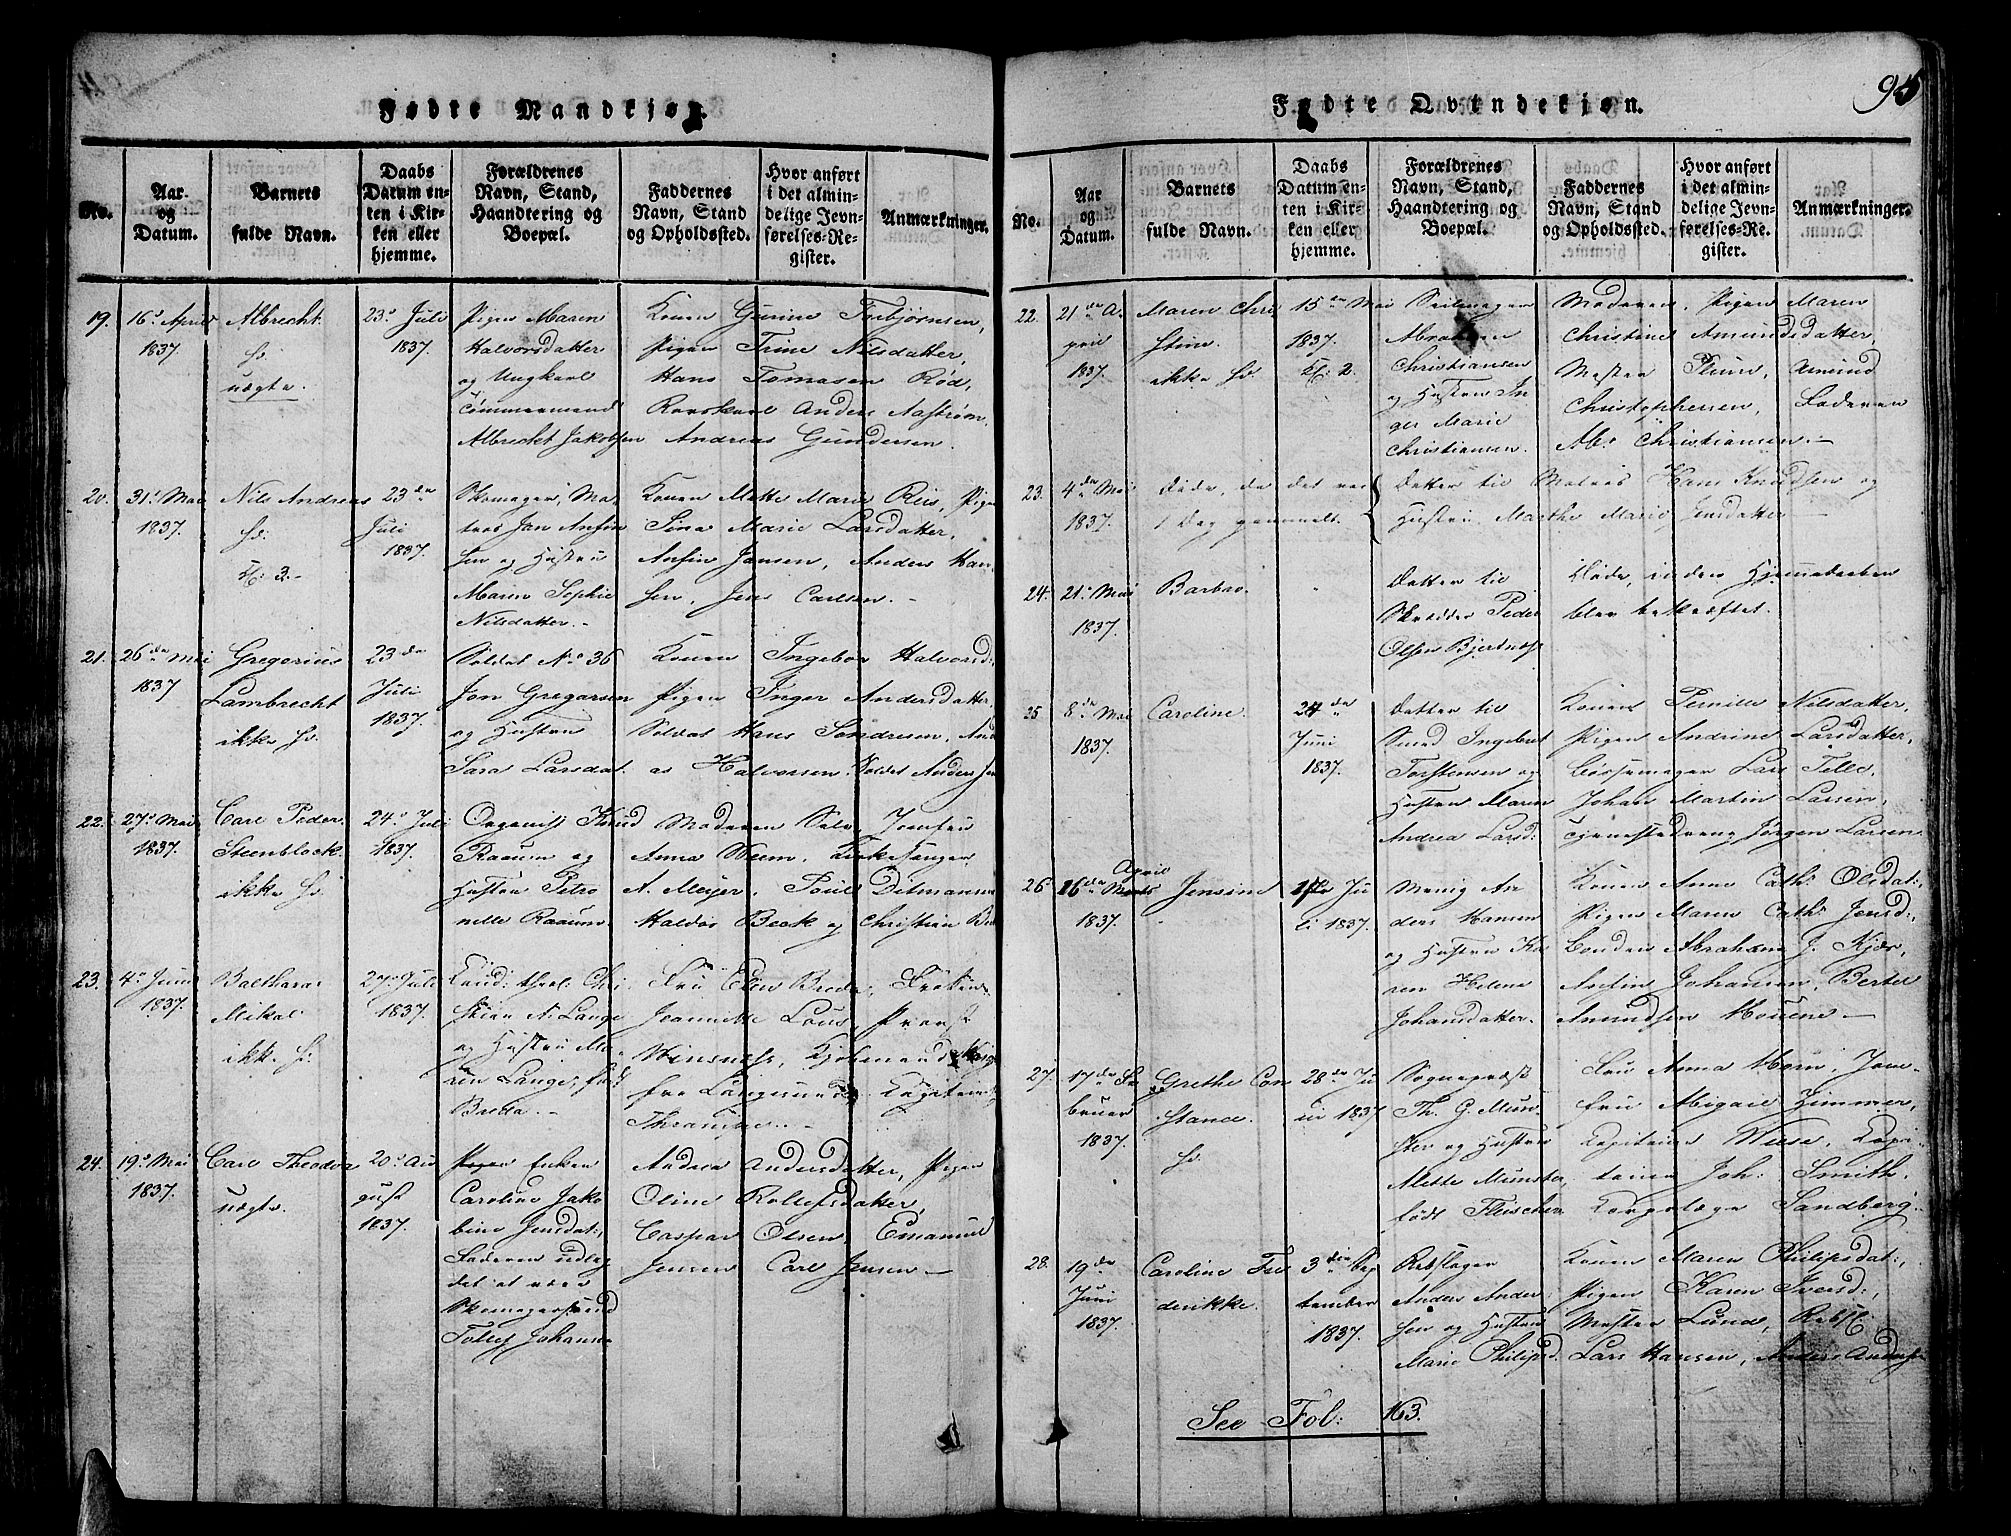 95
Fødte Mandkjøn.
No.
Aar og Datum.
Barnets fulde Navn.
Daabs Datum enten i Kirken eller hjemme.
Forældrenes Navn, Stand, Haandtering og Boepæl.
Faddernes Navn, Stand og Opholdssted.
Hvor anført i det almindelige Jevnførelses-Register.
Anmærkninger.
19.
16de April
1837.
Albrecht.
hd:
uægte.
23de Juli
1837.
Pigen Maren
Halvorsdatter
og Ungkarl
Tømmermand
Albrecht Jakobsen
Konen Gurine Torbjørnsen,
Pigen Trine Nilsdatter,
Hans Tomasen Rød,
Anders Aastrøm,
Andreas Gundersen.
20.
31. Mai
1837.
Nils Andreas
hd:
Kl: 3.-
23de
Juli
1837.
Skomager, Ma-
tros Jan Anfin
sen og Hustru
Maren Sophie
Nilsdatter.-
Konen Mette Marie Riis, Pigen
Sina Marie Larsdatter,
Anfin Jansen, Anders Han
sen, Jens Carlsen.-
21.
26de Mai
1837
Gregorius
Lambrecht
ikke hd.
23de
Juli
1837.
Soldat No 36
Jon Gregersen
og Hustru
Sara Larsdat.
Konen Ingebor Halvorsd:
Pigen Inger Andersdatter,
Soldat Hans Søndresen, And
as Halvorsen. Soldat Anders
22.
27de Mai
1837.
Carl Peder
Steenblock.
ikke hd.
24de Juli
1837.
Organist Knud
Raaum og
Hustru Petro
nelle Raaum.
Moderen selv, Jomfru
Anna Weem. Kirkesanger
A. Meijer. Poul Ditmansen
Haldor Beck og Christian
23.
4de Juni
1837.
Balthazar
Mikal
ikke hd:
27de Juli
1837.
Cand: theol: Chri
stian N. Lange
og Hustru Ma-
ren Lange, født
Breda.-
Frü Elen Breda, Frøken
Jeannette Lous, Provst
Winsnes, Kjøbmand
fra Langesund, Capitein
Thraniqe.-
24.
19de Mai
1837.
Carl Theodor
uægte.
20de Au
gust
1837.
Enken
Caroline Jako
bine Jensdat:,
Faderen udlag
det at være
Skomagersvend
Tollef Johanne
Andrea Andersdatter, Pigen
Oline Rollefsdatter,
Caspar Olsen, Emanuel
Jensen Carl Jensen.-
Fødte Qvindekjøn.
No.
Aar og Datum.
Barnets fulde Navn.
Daabs Datum enten i Kirken eller hjemme.
Forældrenes Navn, Stand, Haandtering og Boepæl.
Faddernes Navn, Stand og Opholdssted.
Hvor anført i det almindelige Jevnførelses-Register.
Anmærkninger.
22.
21de A-
pril
1837.
Maren Chri
stine.
ikke hd.
15de Mai
1837.
Kl: 2.
Seilmager
Abraham
Christiansen
og Hustru In
ger Marie
Christiansen.
Moderen. Pigen Maren
Christine Amundsdatter,
Mester Amund
Christophersen, Faderen
Abr. Christiansen.-
23.
4de Mai
1837.
Døde, da det var
1 Dag gammelt.
Datter til Matros Hans Knudsen og
Hustru Marthe Marie Jensdatter.-
24.
21de Mai
1837.
Barbro.
Datter til
Skrædder Peder
Olsen Bjertnæs
Døde, inden Hjemmedaaben
blev bekræftet.
25
8de Mai
1837.
Caroline.
24de
Juni
1837.
Datter til
Smed Ingebret
Torstensen og
Hustru Maren
Andrea Larsd:
Konen Pernille Nilsdatter,
Pigen Andrine Larsdatter,
Bøssemager Lars Telle,
Johan Martin Larsen,
Tjenestedreng Jørgen Larsen
26.
16de April
1837.
Jensine
1ste Ju
li 1837.
Menig An
ders Hansen
og Hustru Ka
ren Helene
Johansdatter.
Konen Anne Cath: Olsdat:,
Pigen Maren Cath: Jensd:,
Bonden Abraham J. Kjær,
Anfin Johansen, Bertel
Amundsen Mouene.-
27.
17de Fe
bruar
1837.
Grethe Con
stance.
hd.
28de Ju
ni 1837
Sognepræst
Th. G. Mün-
ster og Hustru
Mette Münster,
født Fleischer
Frü Anna Horn, Jom-
fru Abigael Zimmer,
Capitain Wiese, Capi-
tain Joh: Smith.
Korpslæge Sandberg.
28.
19de
Juni
1837.
Caroline Fre
derikke.
3die Sep
tember
1837.
Rebslager
Anders Ander
sen og Hustru
Marie Philipsd.
Konen Maren Philipsdat:,
Pigen Karen Iversd:,
Mester Lund, Rebsl:
Lars Hansen, Anders Anders
See Fol: 163.